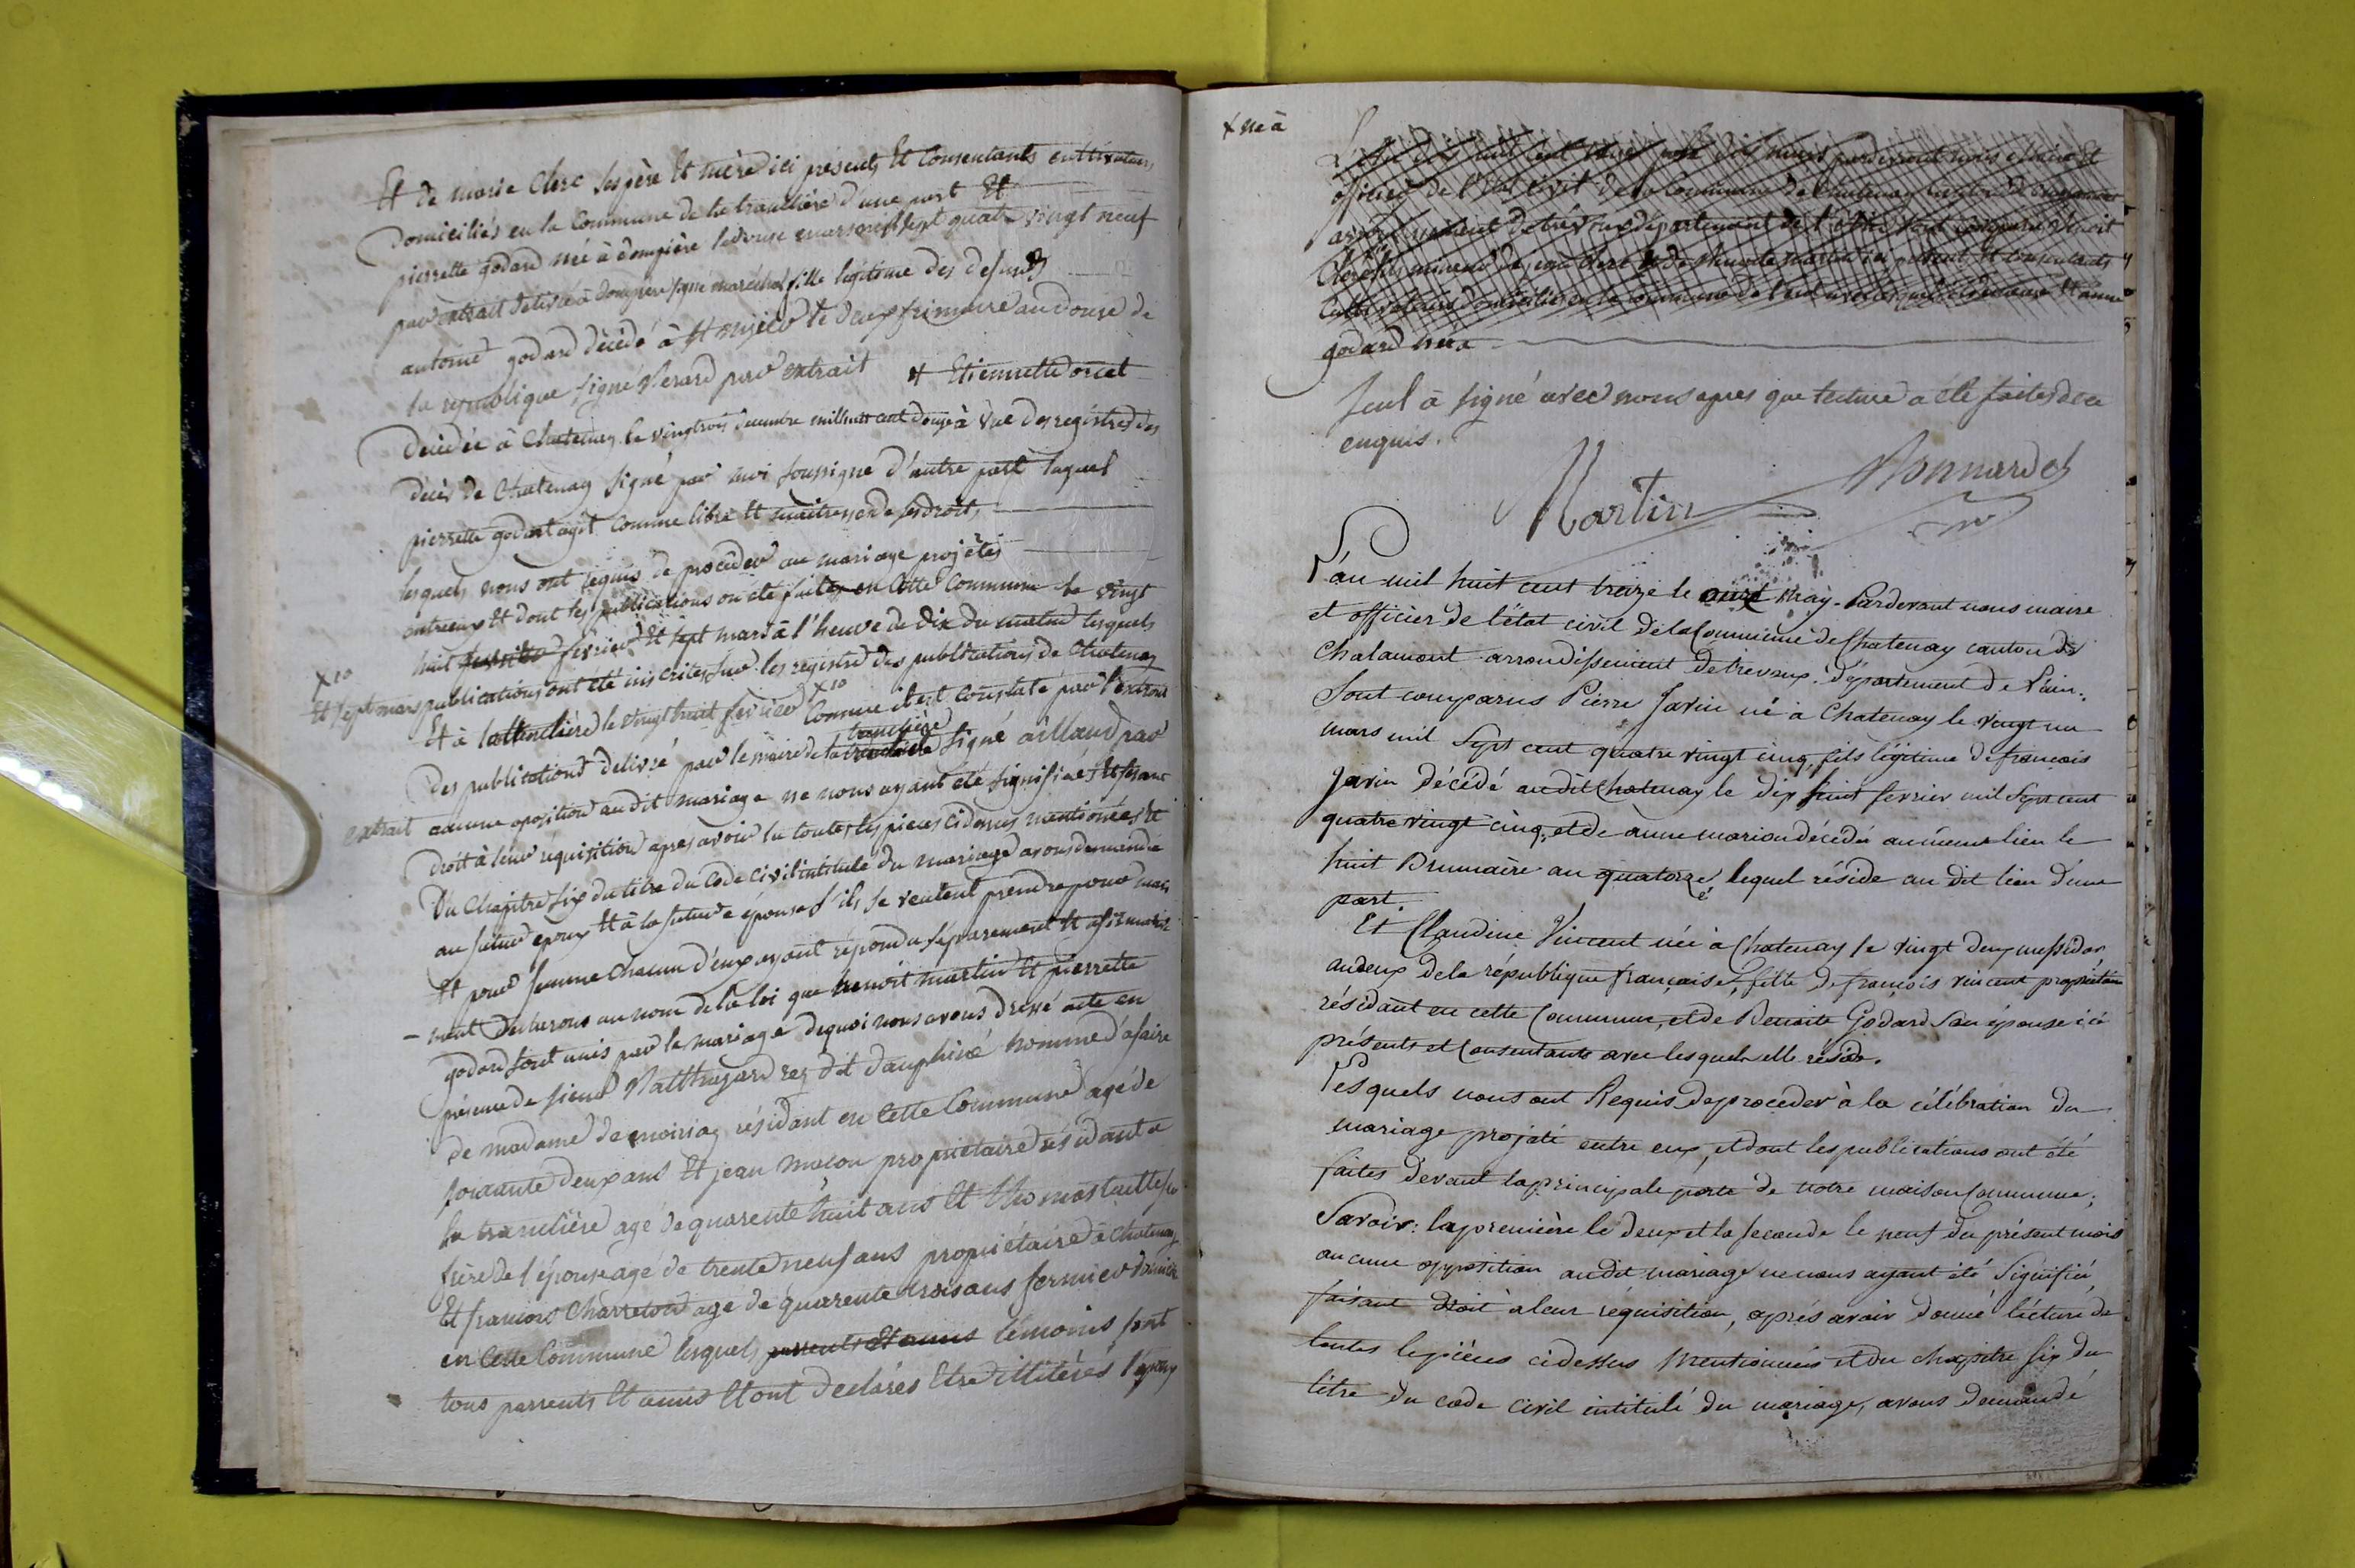 Et de marie Clerc ses père Et mère ici présents Et Consentants cultivateurs
Domiciliés en la Commune de la tranclière d'une part Et
pierrette godard née à dompière le douze mars mil sept quatre vingt neuf
par extrait délivré à dompierre signé maréchal fille légitime des defunts
antoine godard décédé à St nizier le deux frimaire an douze de
la republique signé Verard par extrait et Etiennette orcet
Décédée à Chatenay le vingtrois decembre mil huit cent douze à vue des registres des
décès de Chatenay signé par moi soussigné d'autre part laquel
pierrette godart agit Comme libre Et maitresse de ses droits,
lesquels nous ont requis de procéder au mariage projetés
entreeux Et dont les publications on été faites en Cette Commune le vingt
huit fevrier Et sept mars à l'heure de Dix du matin lesquels
publications ont été inscrites sur les registre des publications de Chatenay
x 10
Et sept mars
Et à la tranclière le vingt huit fevrier x 10 Comme il est Constaté par l'extrait
tranclière
Des publications delivré par le maire de la signé aillaud par
extrait aucune oposition audit mariage ne nous ayant été signifiées Et fesant
Droit à leur réquisition apres avoir lu toutes les pieces cidessus mentionées Et
Du Chapitre six du titre du Code Civil intitulé du mariage avons demandé
au futur epoux Et à la future épouse s'ils se veulent prendre pour mari
Et pour femme chacun d'eux ayant répondu séparement Et afirmative
- ment Declarons au nom de la loi que benoit martin Et pierrette
godard sont unis par le mariage dequoi nous avons dressé acte en
présence de sieur dit dauphiné homme d'afaire
de madame de résidant en Cette Commune agé de
soixante deux ans Et jean macon propriétaire résidant a
la tranclière agé de quarente huit ans Et thomas
frère de l'épouse agé de trente neuf ans propriétaire à Chatenay
Et francois Charreton agé de quarente trois ans fermier
en Cette Commune lesquels parrents Et amis témoins sont
tous parrents Et amis Et ont declarés Etre illitérés l'epoux
x née à
L'an dix huit cent treize dix mars pardevant nous maire Et
officier de l'état civil de la Commune de Chatenay Canton de Chalamont
arrondissement de trévoux département de l'ain sont comparu benoit
Clerc fils mineur de jean clerc Et de martin ici présent Et consentants
cultivateurs domiciliés en la commune de
godard née x
seul à signé avec nous apres que lecture a été faites de ce
enquis.
Martin Monnardet
L'an mil huit cent treize le onze May. Pardevant nous maire
et officier de l'état civil de la Commune de Chatenay canton de
Chalamont arrondissement de trevoux. département de l'ain.
Sont comparus Pierre Javin né à Chatenay le vingt un
mars mil sept cent quatre vingt cinq, fils légitime de françois
Javin décédé audit Chatenay le dix huit fevrier mil sept cent
quatre vingt cinq, et de anne marion décédée au même lieu le
huit Brumaire an quatorze, lequel réside au dit lieu d'une
part.
Et Claudine Vincent née à Chatenay le vingt deux messidor
an deux de la république française, fille de françois vincent propriétaire
résidant en cette Commune, et de Benoite Godard son épouse ici
présents et Consentants avec lesquels elle réside.
Lesquels nous ont Requis de proceder à la célébration du
mariage projeté entre eux, et dont les publications ont été
faites devant la principale porte de notre maison Commune;
Savoir: la première le deux et la seconde le neuf du présent mois
aucune opposition audit mariage ne nous ayant été signifiée,
faisant droit à leur réquisition, après avoir donné lecture de
toutes les pièces cidessus Mentionnées et du chapitre six du
titre du code Civil intitulé du mariage, avons demandé